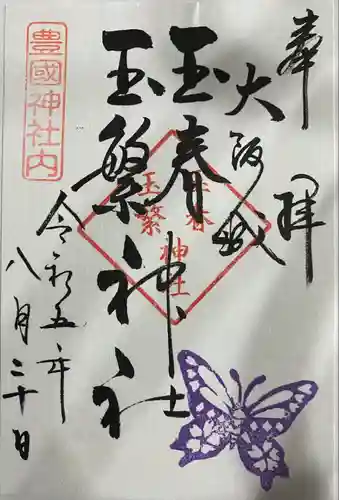 奉拝
大阪城
玉春神社
玉繁神社
玉春神社
玉繁
豊國神社内
令和五年
八月二十日